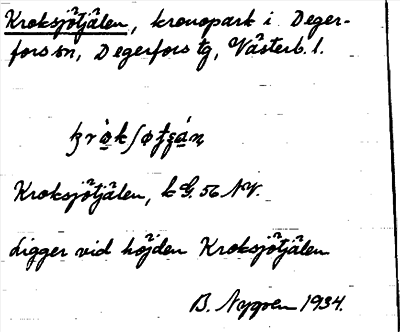 Kroksjötjälen, kronopark i Deger-
fors sn, Degerfors tg, Västerb. l.
Kroksjötjälen, k G. 56 NV.
Ligger vid höjden Kroksjötjälen
B. Nygren 1934.